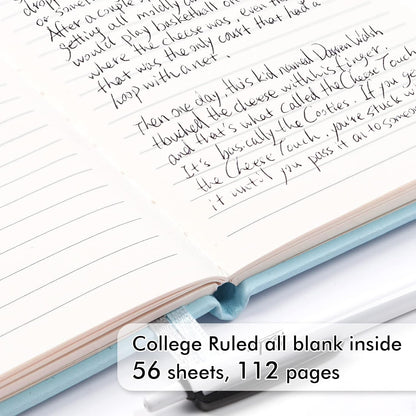 After a couple
getting all mildly
would play basketball on
where the cheese was, even
that was the only court that had a
loop with a net.
Then one day, this kid named Darren Walsh
touched the cheese with his finger,
and that's what called the Cheese Touch
It's basically the Cooties. If you ge
the Cheese Touch, you're stuck w
it until you pass it on to someo
College Ruled all blank inside
56 sheets, 112 pages